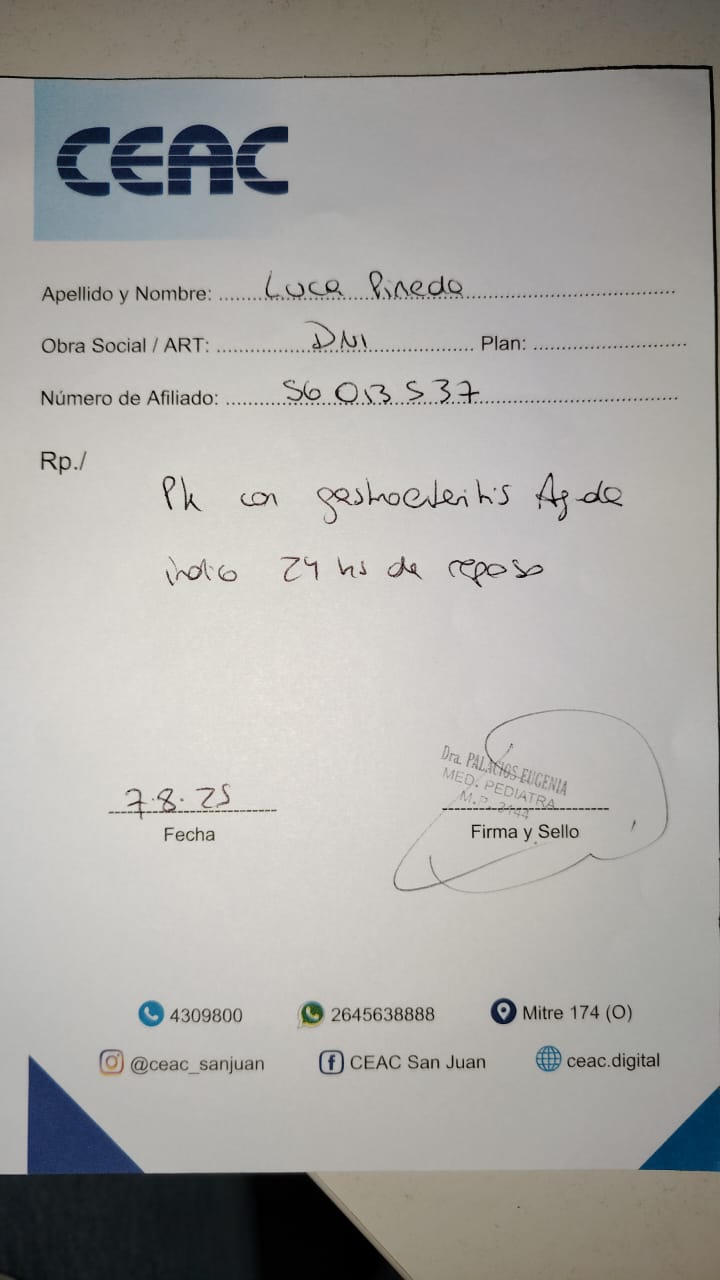 CEAC
Apellido y Nombre: Luca Pineda
Obra Social / ART: DNI Plan:
Número de Afiliado: 56 013 537
Rp./
con gastroenteritis Aguda
indico 24 hs de reposo
7.8.25
Fecha
Dra. PALACIOS EUGENIA
MED. PEDIATRA
M.P. 3144
Firma y Sello
4309800 2645638888 Mitre 174 (O)
@ceac_sanjuan CEAC San Juan ceac.digital